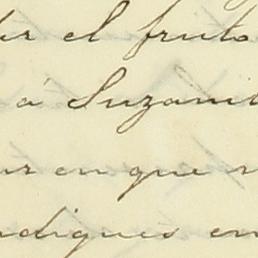 er el fruto
á Suzanit
ur en que
ndiques en